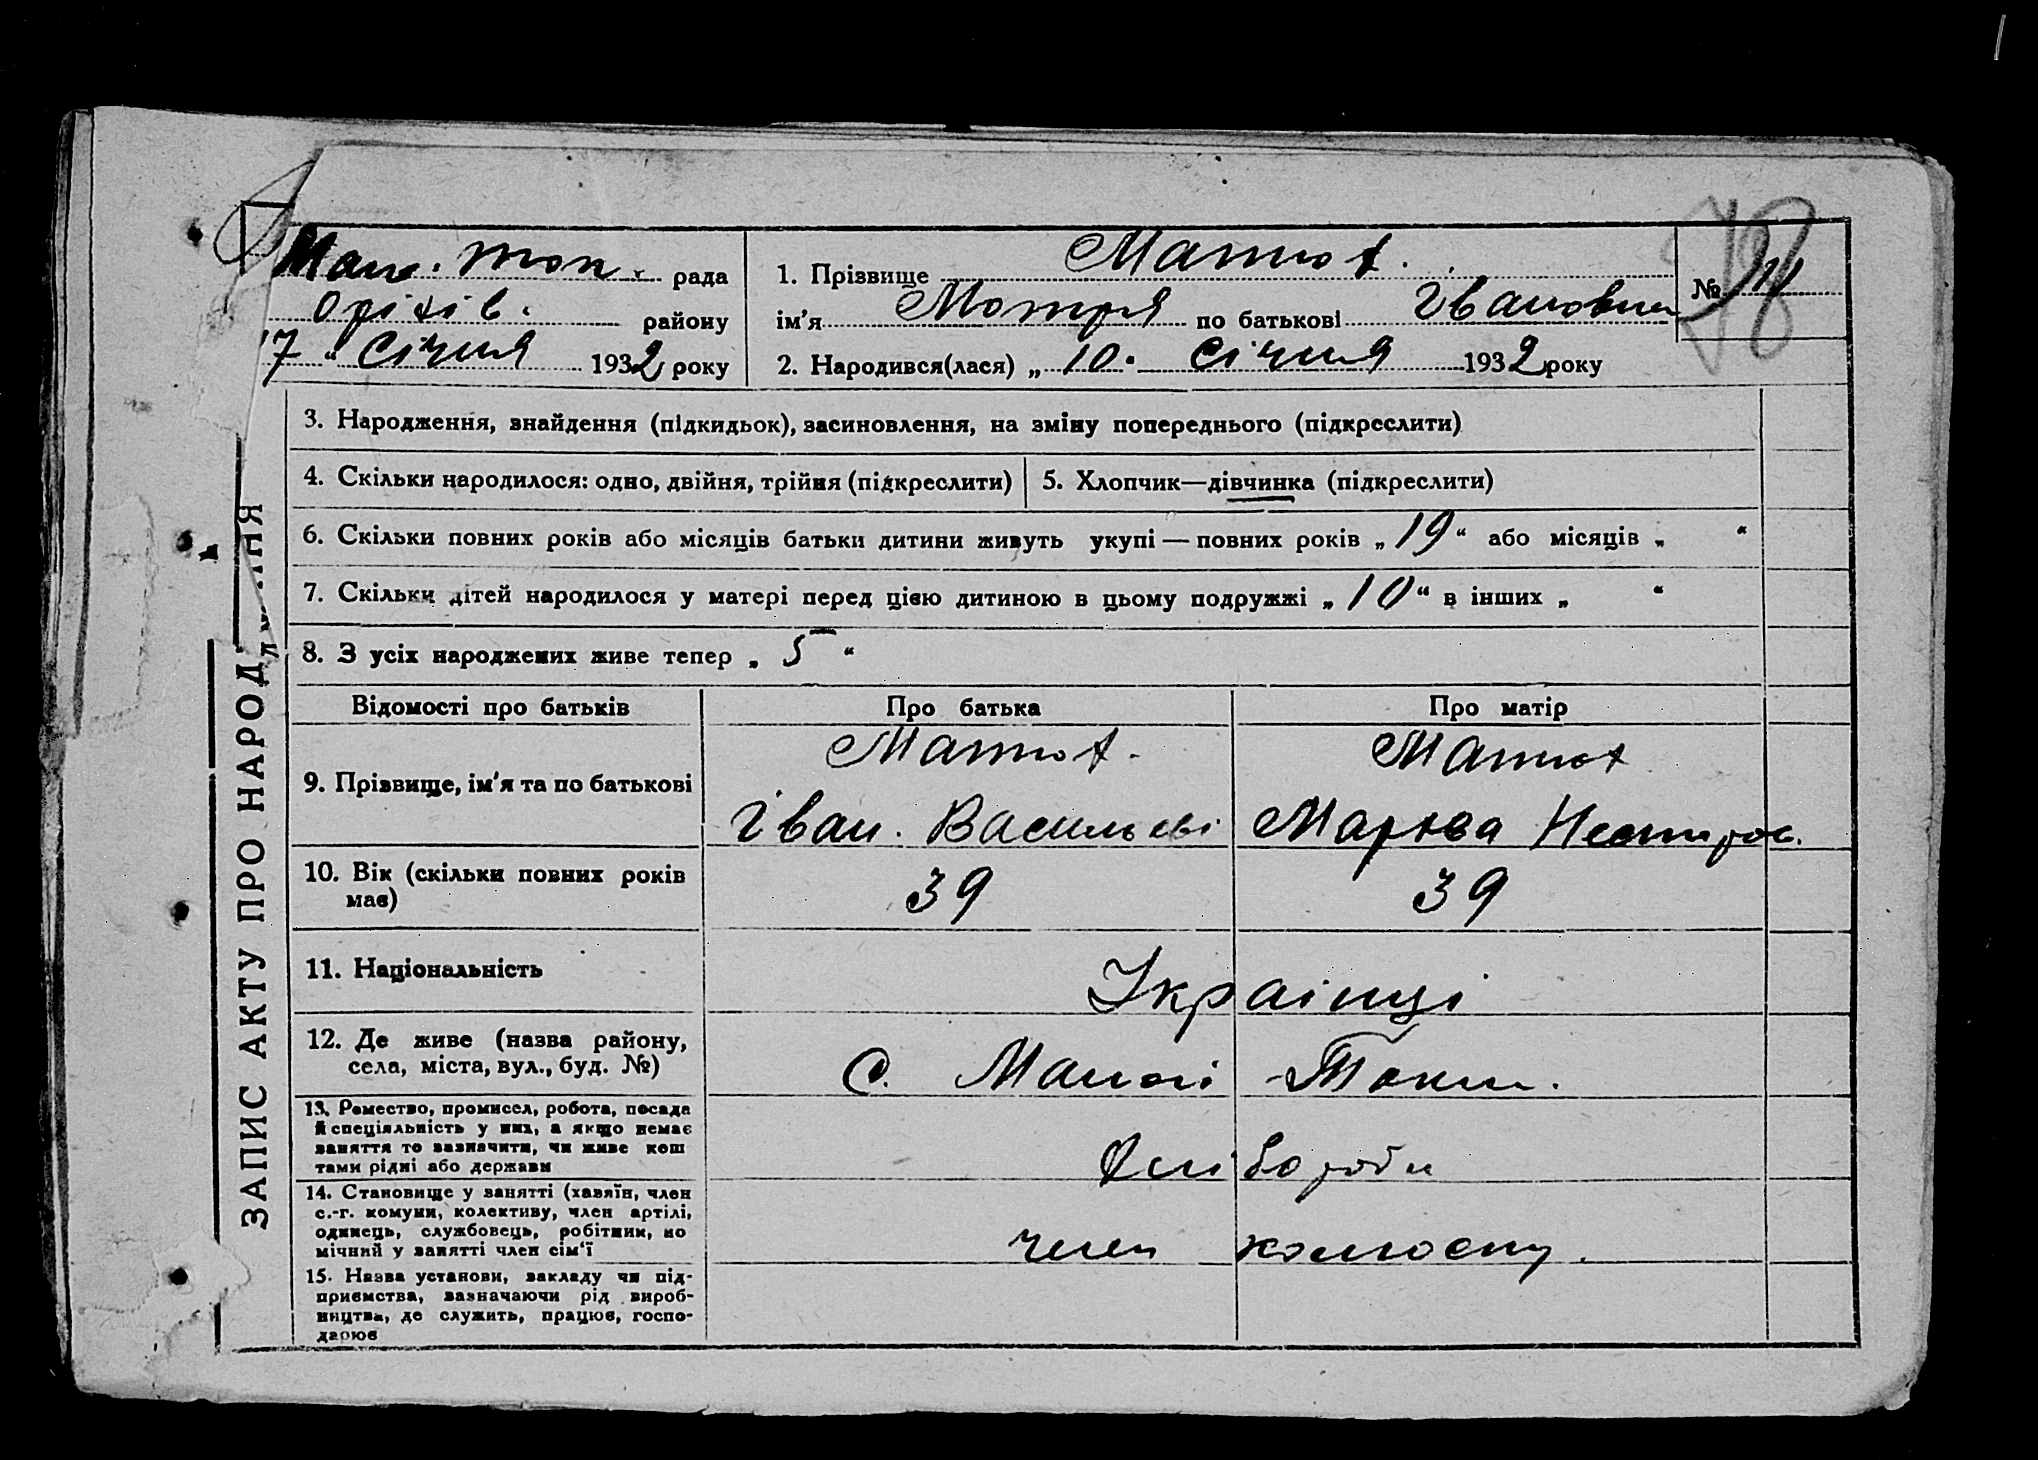 Мало. Ток. рада
Оріхів. району
17 „ Січня 1932 року
1. Прізвище Матюх.
ім'я Мотря по батькові Івановна
№
2. Народився(лася) „ 10 " Січня 1932 року
3. Народження, знайдення (підкидьок), засиновлення, на зміну попереднього (підкреслити)
4. Скільки народилося: одно, двійня, трійня (підкреслити)
5. Хлопчик—дівчинка (підкреслити)
6. Скільки повних років або місяців батьки дитини живуть укупі — повних років „ 19 “ або місяців „ “
7. Скільки дітей народилося у матері перед цією дитиною в цьому подружжі „ 10 “ в інших „ “
8. З усіх народжених живе тепер „ 5 “
Відомості про батьків
Про батька
Про матір
9. Прізвище, ім'я та по батькові
Матюх.
Іван. Васильеві
Матюх
Марѳва Нестиров.
10. Вік (скільки повних років
має)
39
39
11. Національність
Українці
12. Де живе (назва району,
села, міста, вул., буд. №)
С. Малої Токм.
13. Ремество, промисел, робота, посада
й спеціяльність у них, а якщо немає
заняття то зазначити, чи живе кош
тами рідні або держави
Хлібороби
14. Становище у занятті (хазяїн, член
с.-г. комуни, колективу, член артілі,
одинець, службовець, робітник, по
мічний у занятті член сім'ї
член колгоспу.
15. Назва установи, закладу чи під-
приємства, зазначаючи рід вироб-
ництва, де служить, працює, госпо-
дарює
ЗАПИС АКТУ ПРО НАРОД